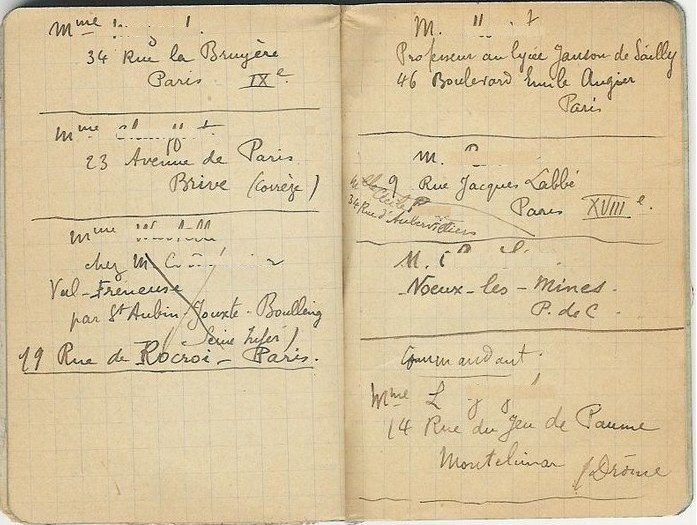 Mme
34 Rue la Bruyère
Paris IXe.
Mme
23 Avenue de Paris
Brive (Corrèze)
Mme
chez M.
Val-Freneuse
par St Aubin-Jouxte-Boulleng
(Seine Infer)
19 Rue de Rocroi - Paris.
M.
Professeur au lycée Janson de Sailly
46 Boulevard Emile Augier
Paris
M.
9 Rue Jacques Labbé
Paris XVIIIe.
34 Rue d'Aubervilliers
M.
Noeux-les-Mines.
P. de C.
Commandant.
Mme L
14 Rue du Jeu de Paume
Montelimar (Drôme